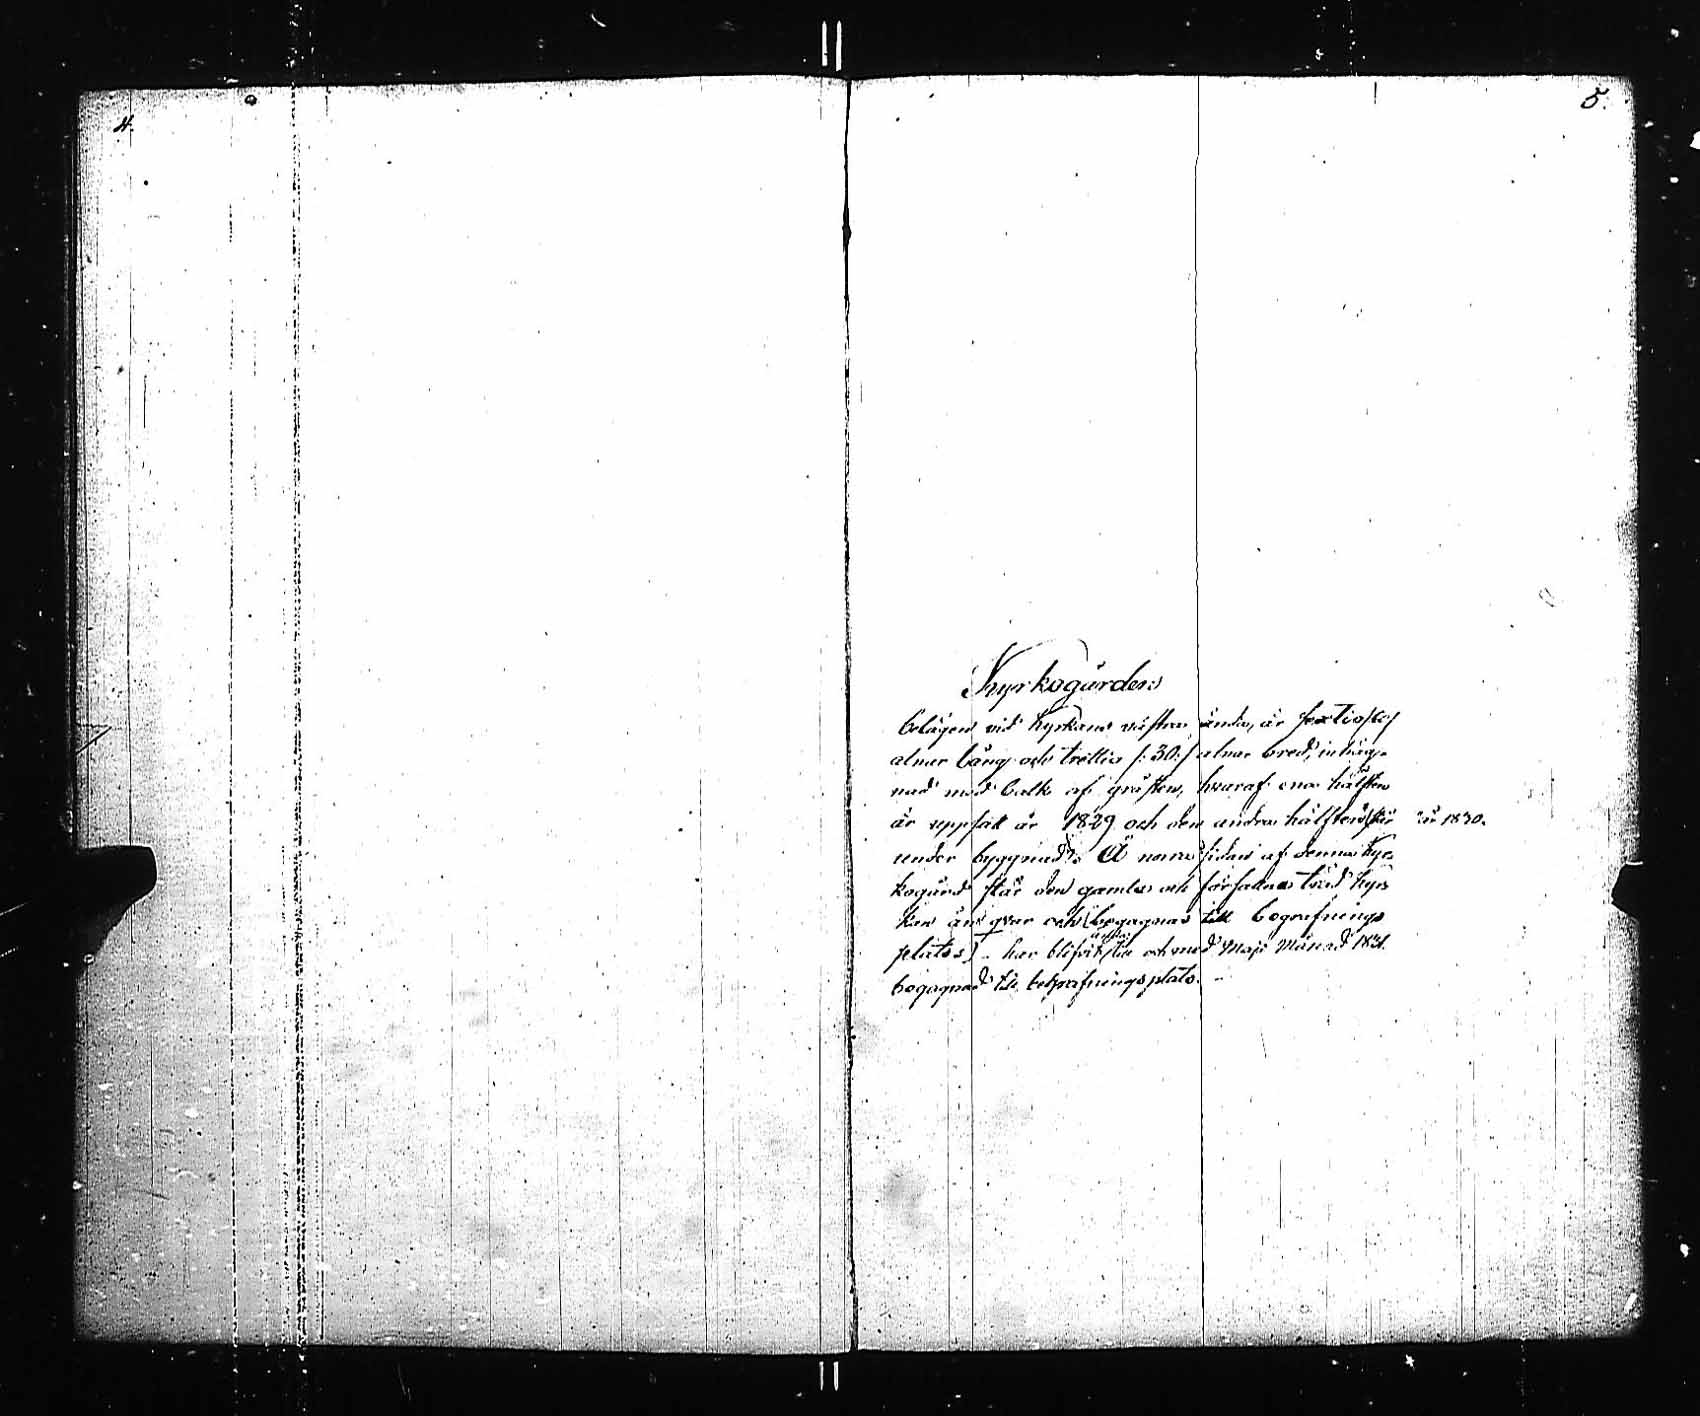 4.
5.
Kyrkogården
belägen vid kyrkans västra ända, är sextio
alnar lång och trettio /: 30:/ alnar bred, inhäg-
nad med balk af gråsten, hvaraf ena hälften
är uppsatt år 1829 och den andra hälften är 1830.
under byggnad. Å norra sidan af denna kyr-
kogård står den gamla och förfallna träd kyr-
kan än qvar och begagnas till begrafnings
plats) - har blifvit och med Maji Månad 1831.
begagnad till begrafningsplats. -